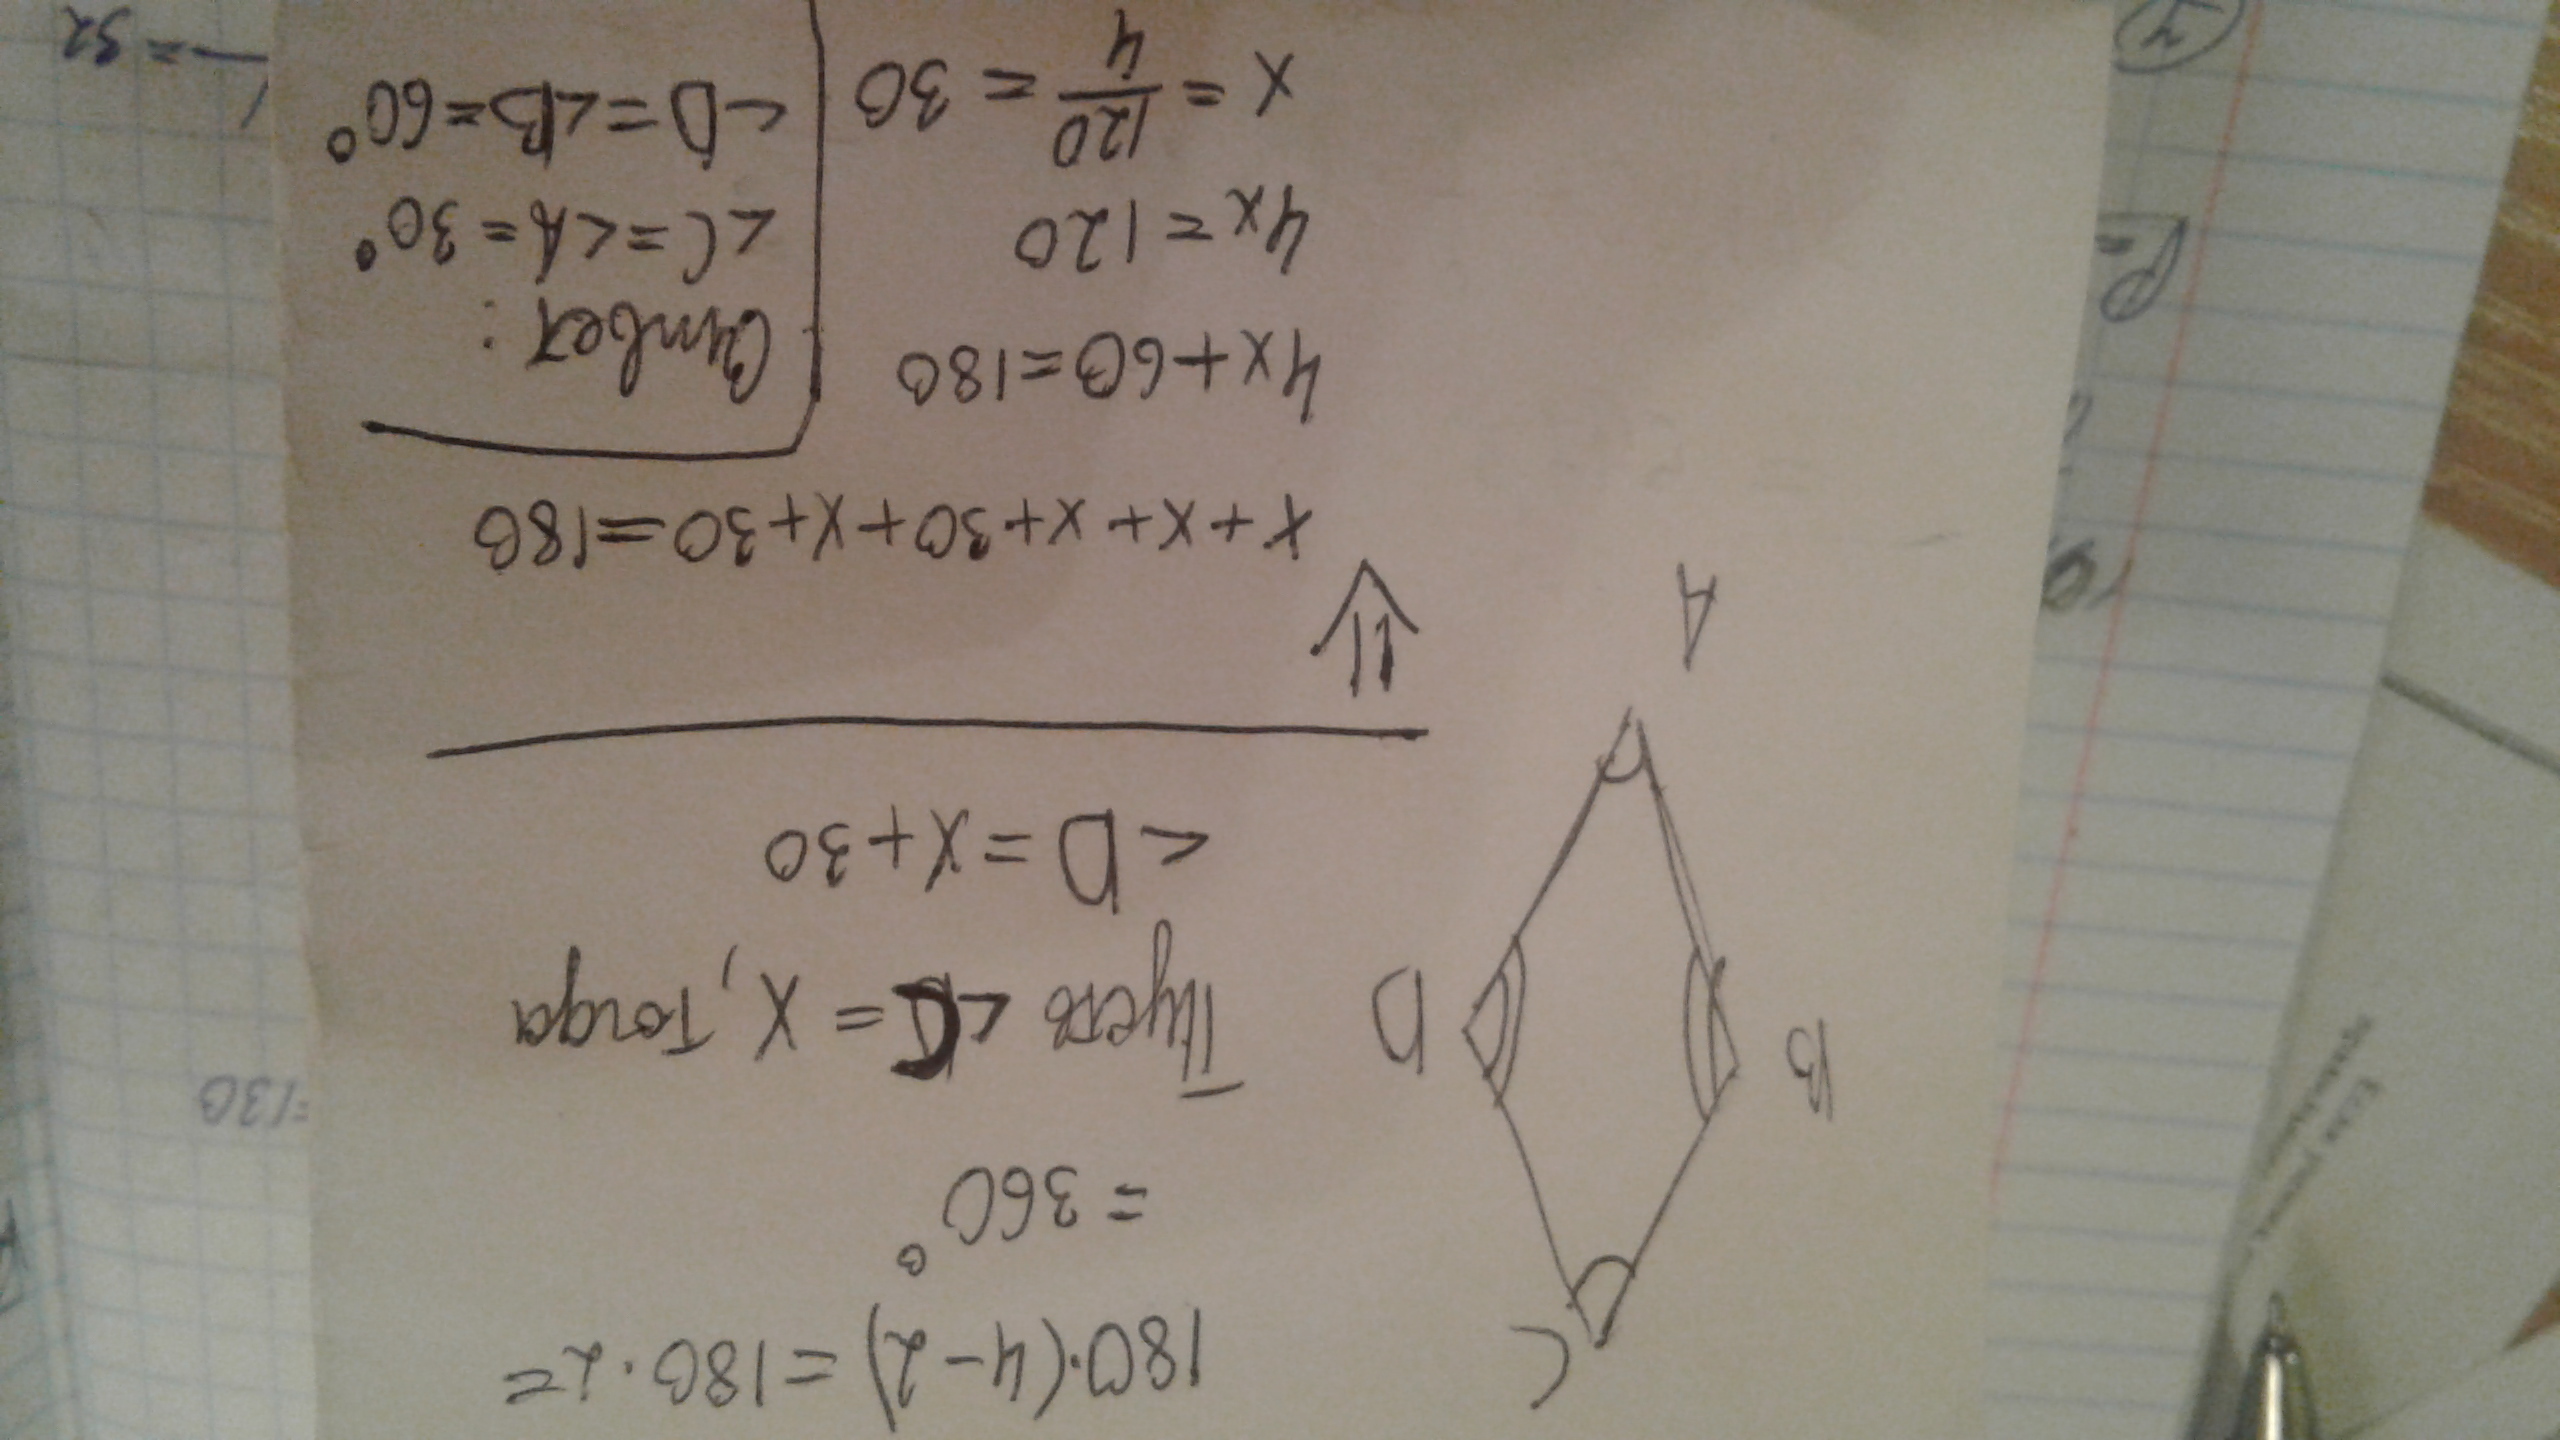 C
B
D
A
180·(4-2)=180·2=
=360°
Пусть <C=x, тогда
<D=x+30
x+x+x+30+x+30=180
4x+60=180
4x=120
x=120/4=30
Ответ:
<C=<A=30°
<D=<B=60°
=130
P=
=52